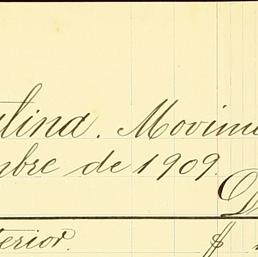 lina. Movim
mbre de 1909.
D
terior. $